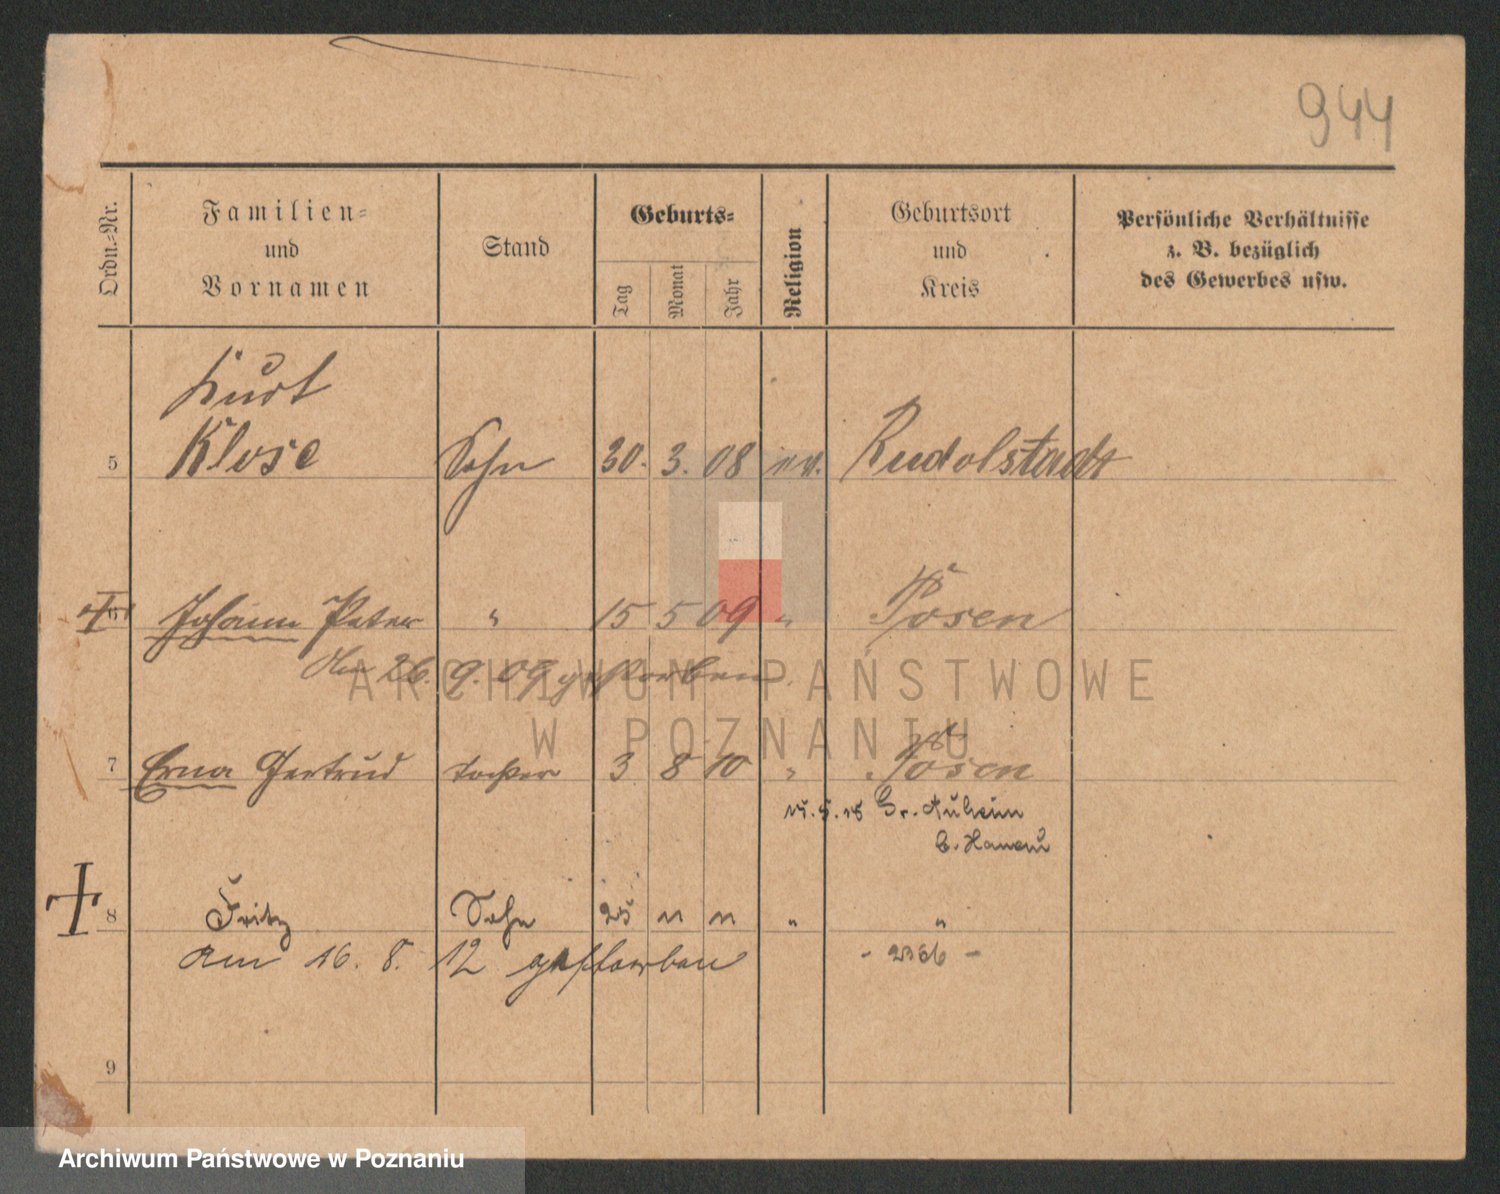 944
Ordn.-Nr.
Familien-
und
Vornamen
Stand
Geburts-
Tag
Monat
Jahr
Religion
Geburtsort
und
Kreis
Persönliche Verhältnisse
z. B. bezüglich
des Gewerbes usw.
Kurt
5 Klose Sohn 30. 3. 08 ev. Rudolstadt
6 Johann Peter " 15 5 09 " Posen
Am 26. 9. 09 gestorben.
ARCHIWUM PAŃSTWOWE
W POZNANIU
7 Erna Gertrud Tochter 3 8 10 " Posen
Gr. Auheim
b. Hanau
8 Fritz Sohn 25 " " " "
Am 16. 8. 12 gestorben
9
Archiwum Państwowe w Poznaniu